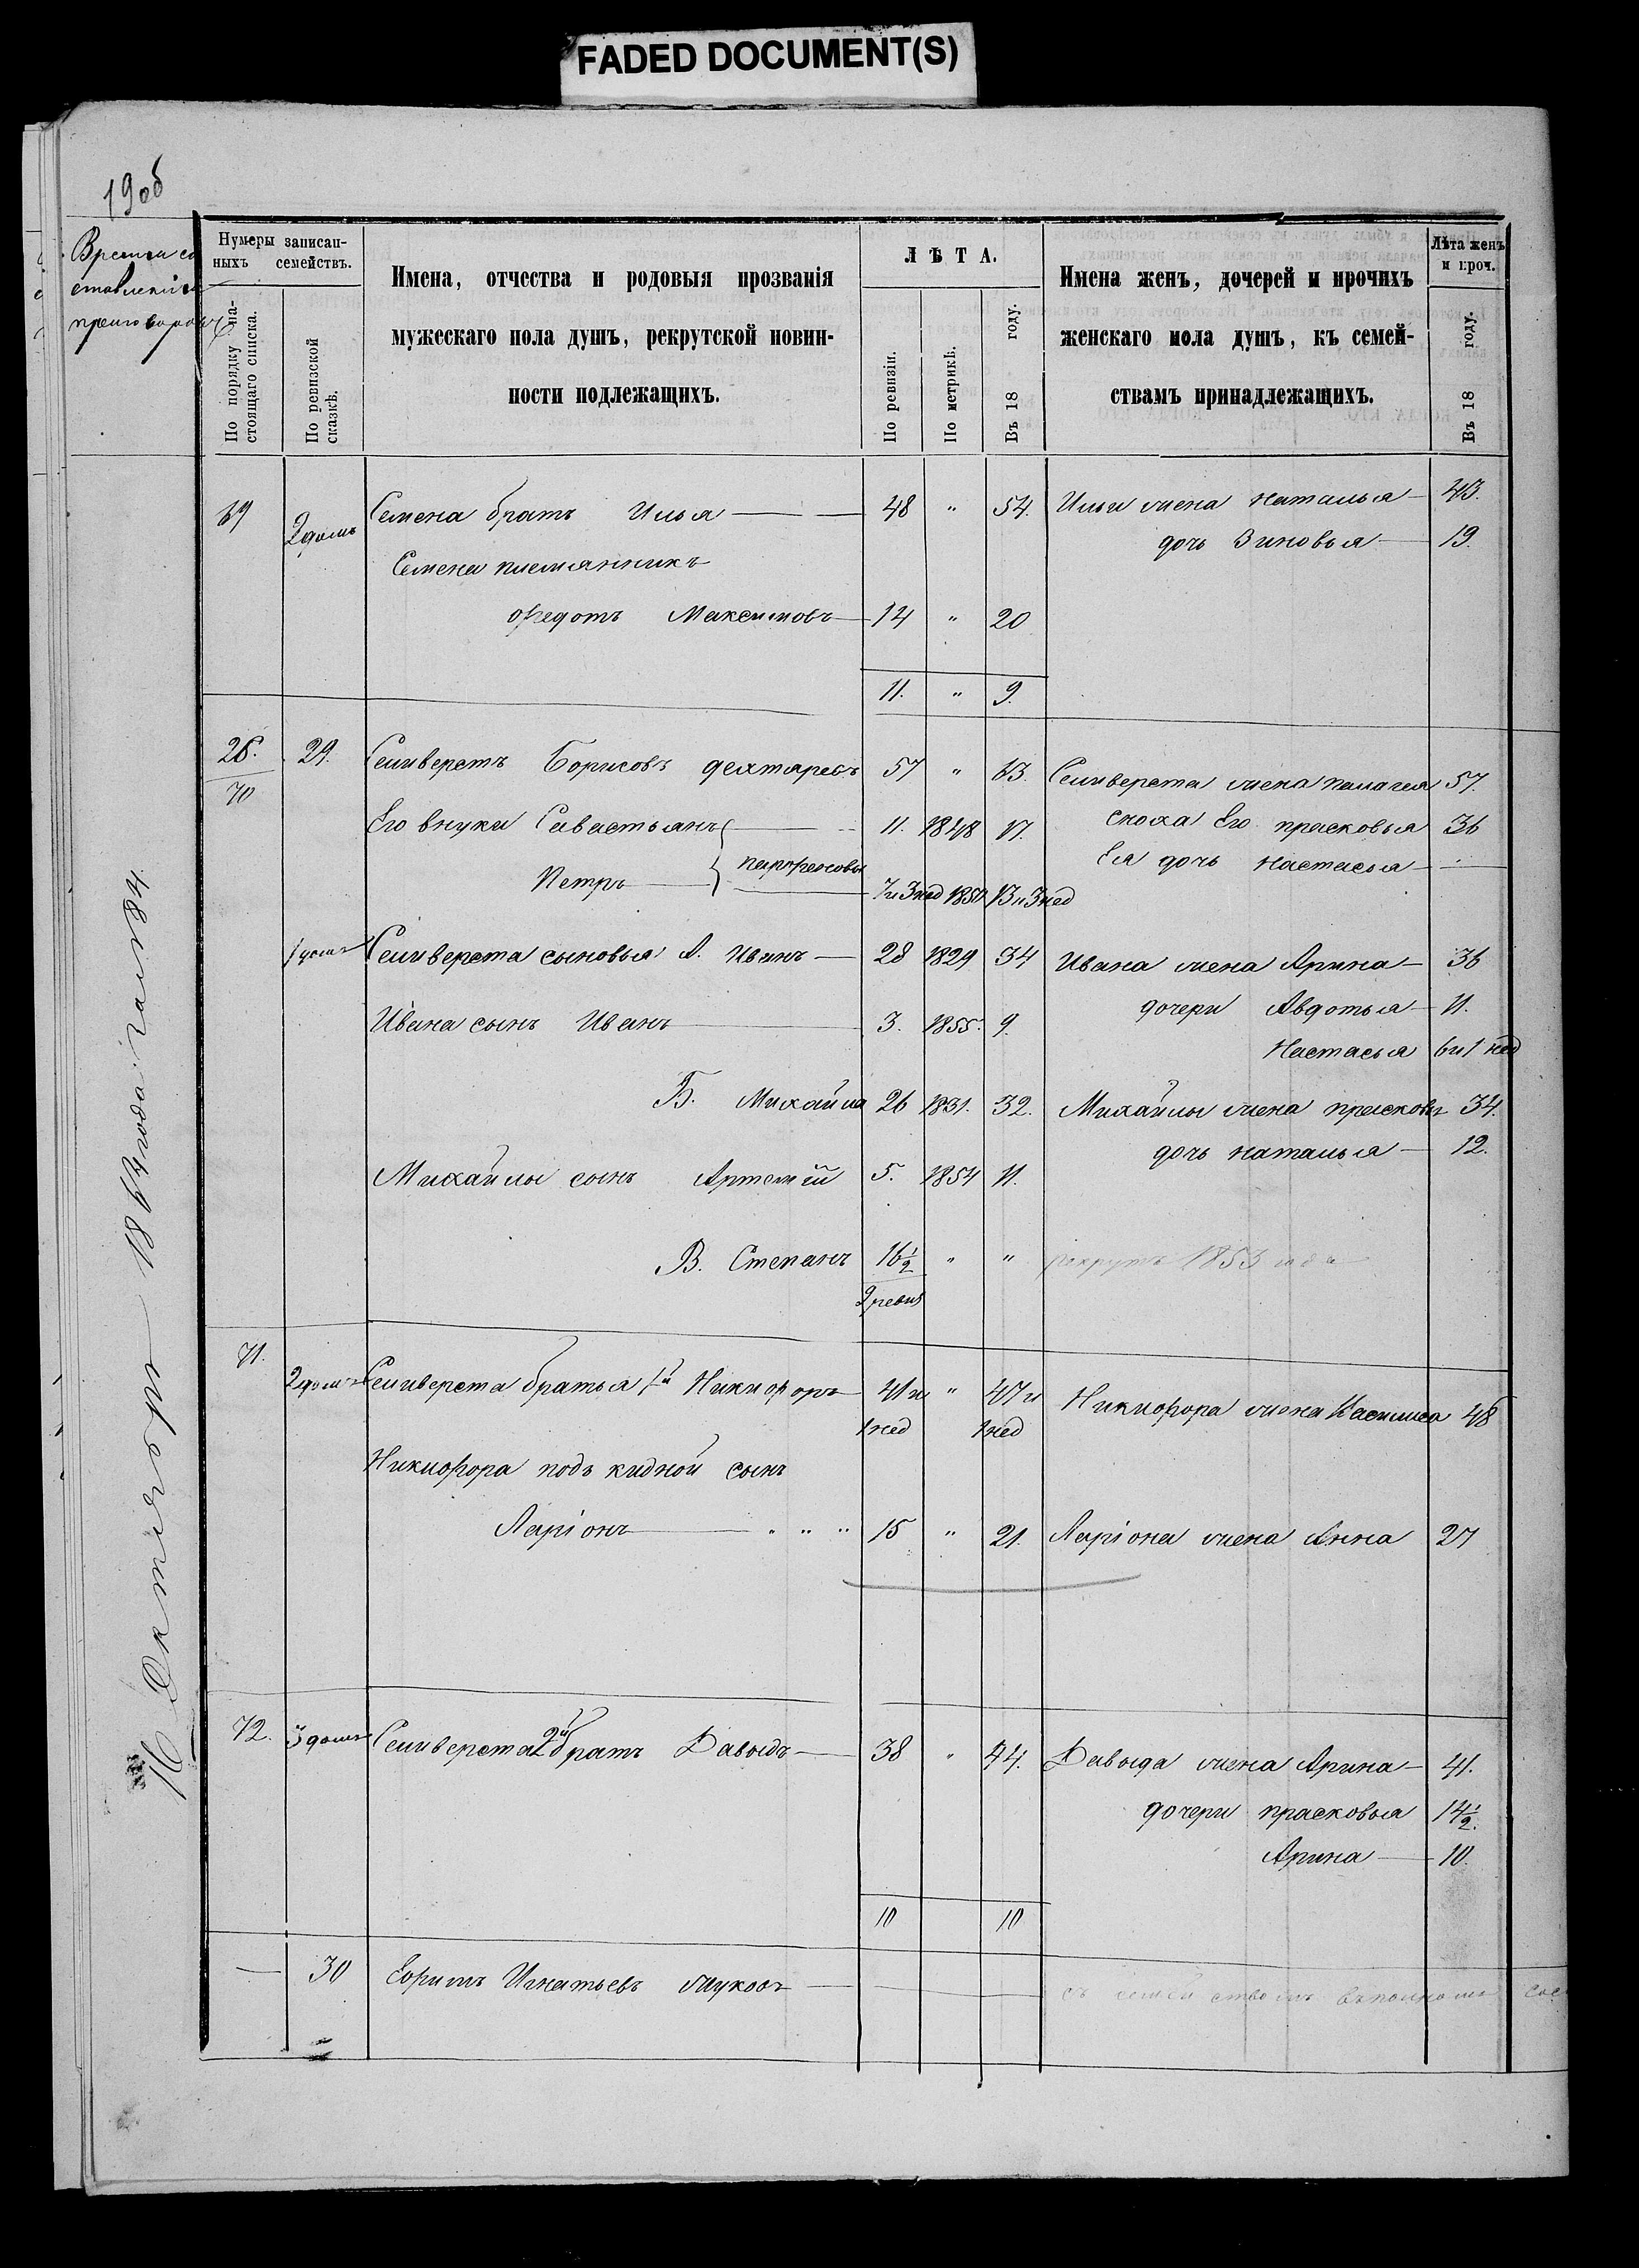 FADED DOCUMENT(S)
19об
Время со
ставленія
приговоровъ
Нумеры записан-
ныхъ семействъ.
По порядку на-
стоящаго списка.
По ревизской
сказкѣ.
Имена, отчества и родовыя прозванія
мужескаго пола душъ, рекрутской повин-
ности подлежащихъ.
ЛѢТА.
По ревизіи.
По метрикѣ.
Въ 18 году.
Имена женъ, дочерей и прочихъ
женскаго пола душъ, къ семей-
ствамъ принадлежащихъ.
Лѣта женъ
и проч.
Въ 18 году.
16 Октября 1864 года
69 2 домъ Семена братъ Илья 48 " 54. Ильи жена Наталья 43.
дочь Зиновья 19.
Семена племянникъ
Ѳедотъ Максимовъ 14 " 20
11. " 9.
28. 29. Селиверстъ Борисовъ Дехтяревъ 57 " 63. Селиверста жена Пелагея 57.
70
Его внуки Савастьянъ 11. 1848 17. Сноха Его Прасковья 36
Парфеновы Ея дочь Настасья
Петръ 7 и 3 нед 1850 13 и 3 нед
1 домъ Селиверста сыновья А. Иванъ 28 1829 34 Ивана жена Арина 36
Ивана сынъ Иванъ 3. 1855. 9. дочери Авдотья 11.
Настасья 6 и 1 нед
Б. Михайла 26 1831. 32. Михайлы жена Прасковья 34.
дочь Наталья 12.
Михайлы сынъ Артемій 5. 1854 11.
В. Степанъ 16½ " " рекрутъ 1853 года
9 ревиз
71. 2 домъ Селиверста братья 1й Никифоръ 41 и " 47 и Никифора жена Василиса 48
1 нед 1 нед
Никифора подъ кидной сынъ
Ларіонъ " " " 15 " 21. Ларіона жена Анна 27
72. 3 домъ Селиверста 2й братъ Давыдъ 38 " 44. Давыда жена Арина 41.
дочери Прасковья 14½.
Арина 10.
10 10
30 Ефимъ Игнатьевъ Жуковъ
съ семействомъ въ полномъ сос